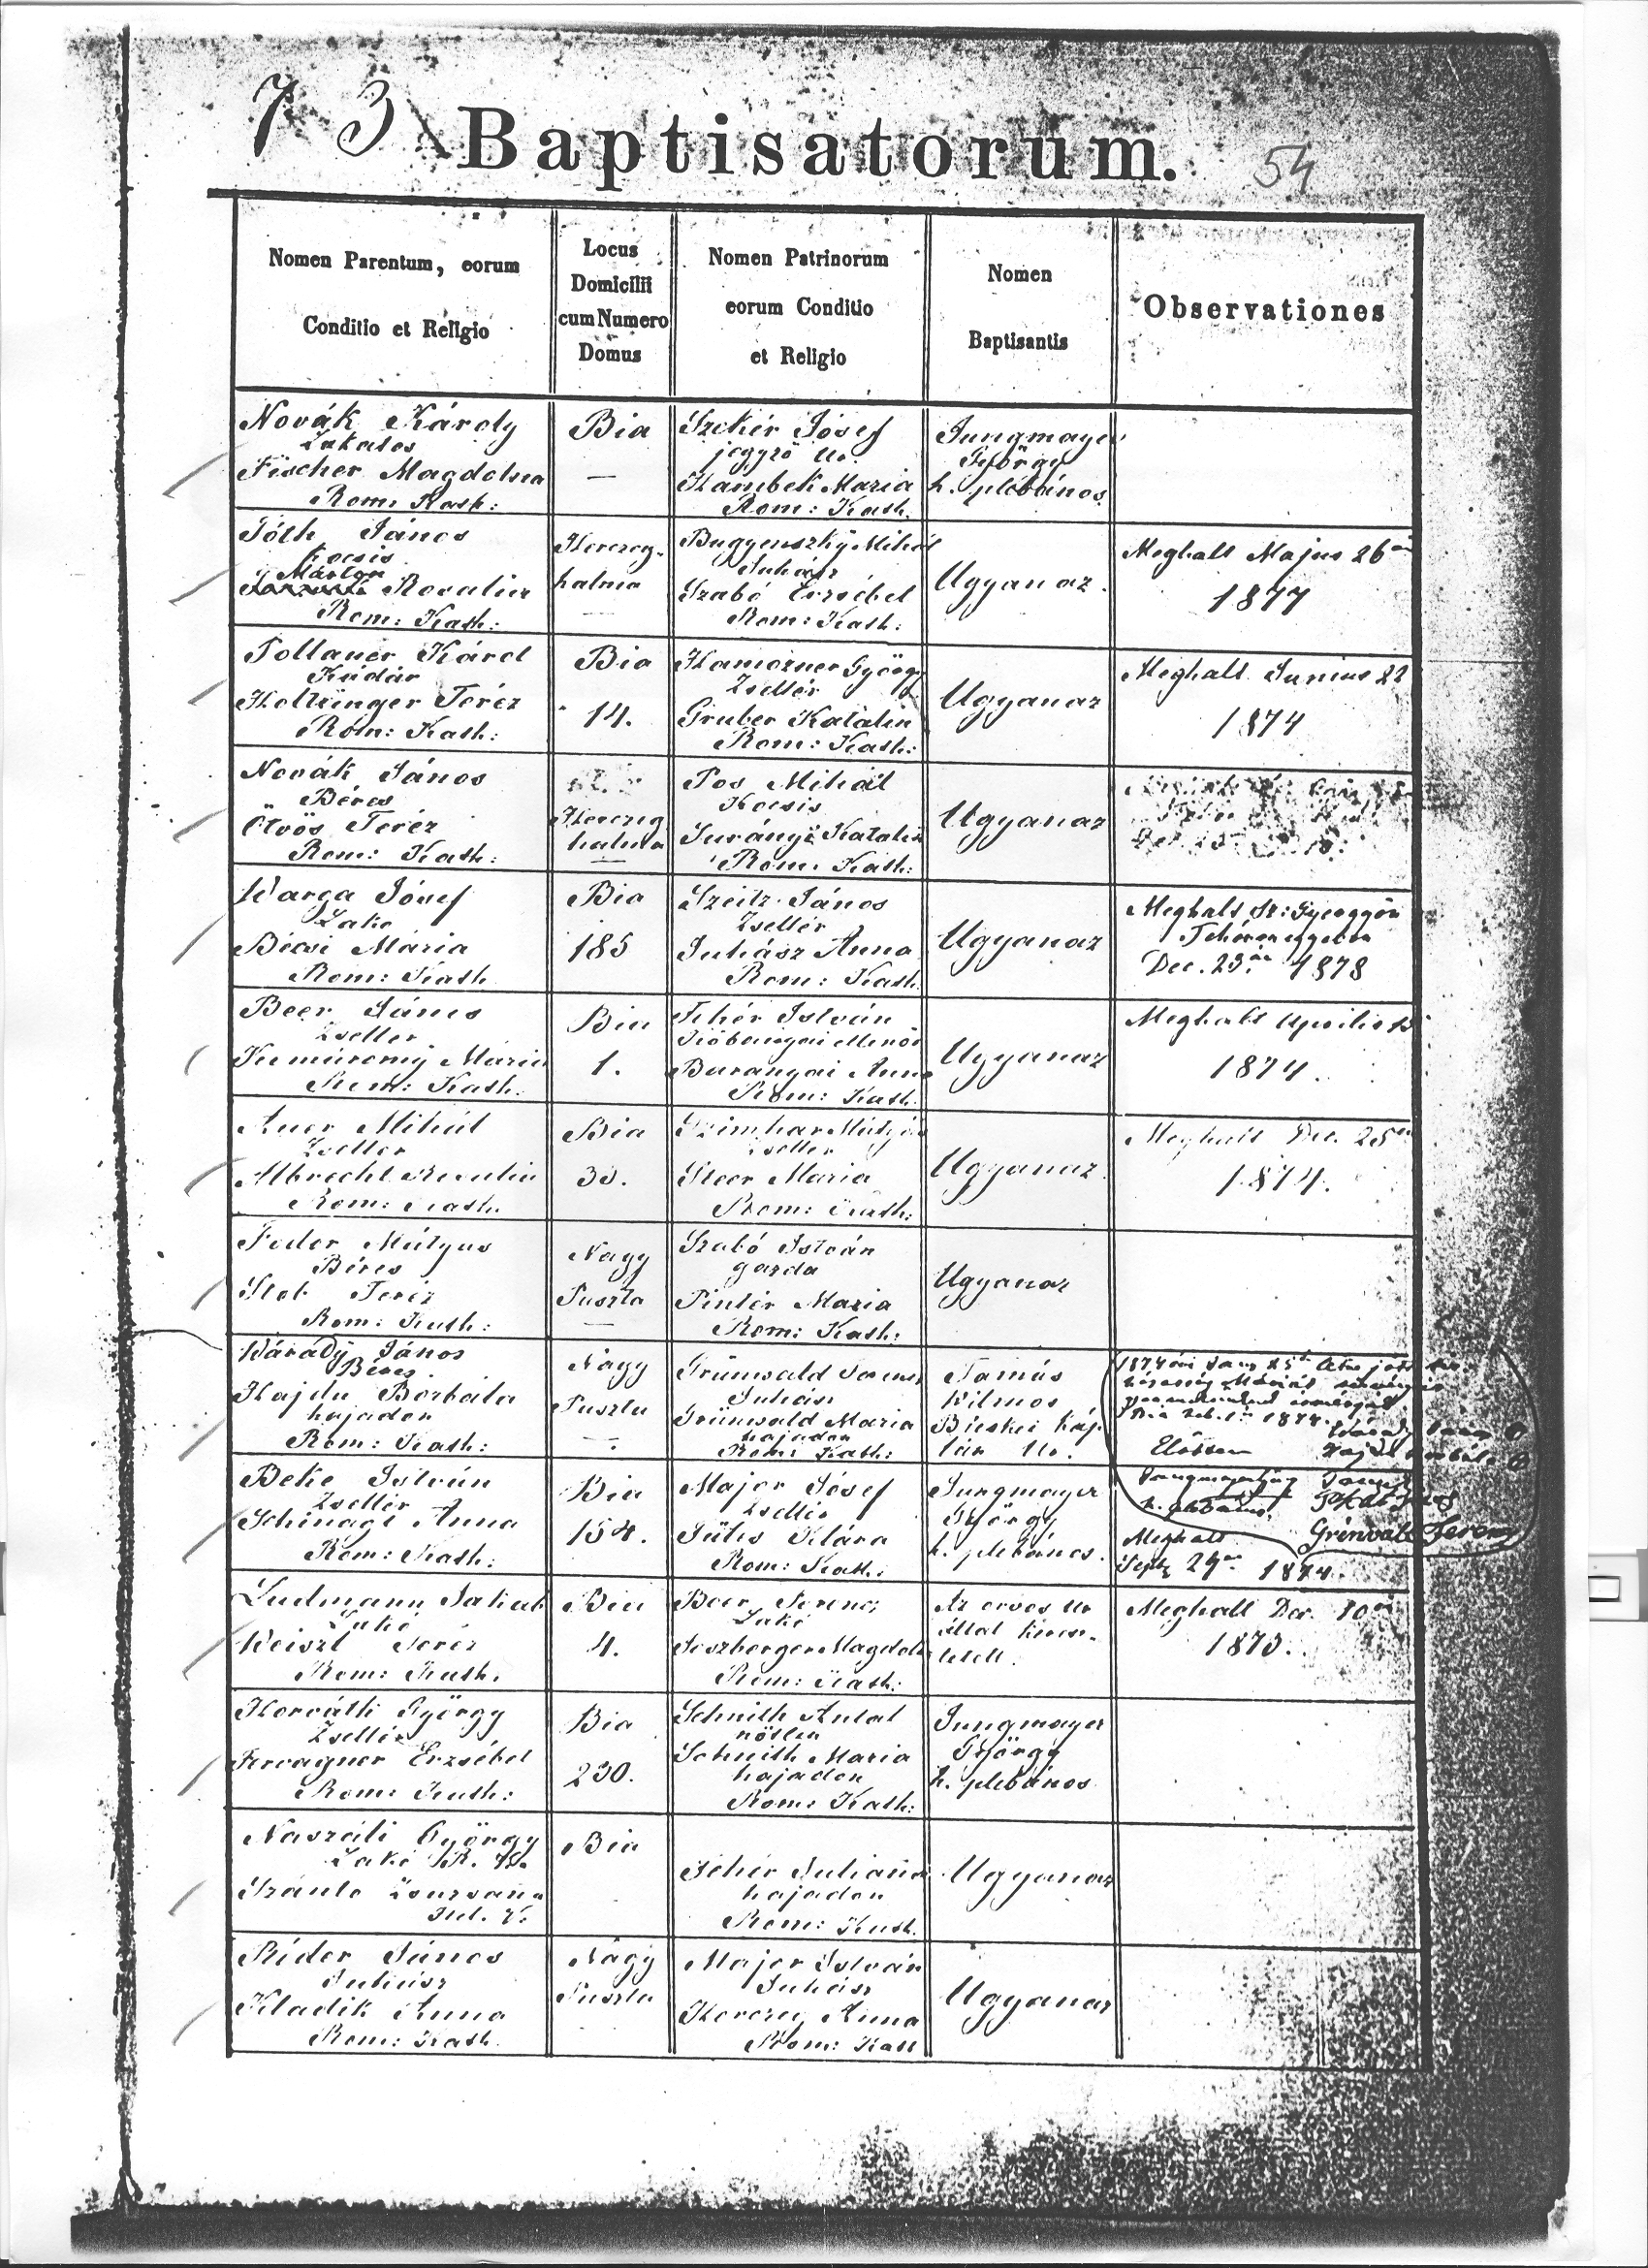 73
Baptisatorum.
54
Nomen Parentum, eorum
Conditio et Religio
Locus
Domicilii
cum Numero
Domus
Nomen Patrinorum
eorum Conditio
et Religio
Nomen
Baptisantis
Observationes
Novák Károly
Lakatos
Fischer Magdolna
Rom: Kath:
Bia
—
Szekér Jósef
jegyző Ur.
Hambek Maria
Rom: Kath.
Jungmayer
György
h. plébános
Tóth János
Kocsis
Márton
Rosalia
Rom: Kath:
Herczeg-
halma
Bugyenszky Mihál
Juhász
Szabó Erzsébet
Rom: Kath:
Ugyanaz.
Meghalt Majus 26án
1877
Tollauer Károl
Kádár
Holtzinger Teréz
Róm: Kath:
Bia
14.
Hamorner György
Zsellér
Gruber Katalin
Rom: Kath:
Ugyanaz
Meghalt Junius 22
1874
Novák János
Béres
Ötvös Teréz
Rom: Kath:
Herczeg
halma
—
Pos Mihál
Kocsis
Surányi Katalin
Rom: Kath:
Ugyanaz
Warga Jósef
Lako
Bécsi Mária
Rom: Kath
Bia
185
Szeitz János
Zsellér
Juhász Anna
Rom: Kath.
Ugyanaz
Meghalt Sz: Gyeoggön
Fehérmegyében
Dec. 23án 1878
Beer János
Zseller
Kumáromy Mária
Rom: Kath:
Bia
1.
Fehér István
Kőbányai
Baranyai Anna
Rom: Kath.
Ugyanaz
Meghalt Aprilis
1874.
Auer Mihál
Zseller
Albrecht Rosalia
Rom: Kath.
Bia
33.
Mátyás
Zseller
Steer Maria
Rom: Kath:
Ugyanaz.
Meghalt Dec. 28án
1874.
Fodor Mátyas
Béres
Teréz
Rom: Kath:
Nagy
Puszta
—
Szabó István
gazda
Pintér Maria
Rom: Kath:
Ugyanaz
Wárady János
Béres
Hajdu Borbála
hajadon
Rom: Kath:
Nagy
Puszta
—.
Grünwald Ferencz
Juhász
Grünwald Maria
hajadon
Rom: Kath:
Tamás
Vilmos
Bicskei Káp
lán Ur.
1874
1874.
Előttem
Jungmayer György
h. plébános
Grünvald Ferencz
Beke István
Zsellér
Schinagl Anna
Rom: Kath:
Bia
154.
Major Jósef
Zsellér
Klára
Rom: Kath:
Jungmayer
György
h. plébános.
Meghalt
Sept. 29án 1874.
Ludmann Jakab
Lakó
Weiszt Teréz
Rom: Kath.
Bia
4.
Beer Ferencz
Lakó
Magdolna
Rom: Kath:
Az orvos Ur
által keresz-
teltett.
Meghalt Dec. 10én
1873.
Horváth György
Zsellér
Fervagner Erzsébet
Rom: Kath:
Bia
230.
Schmith Antal
nőtlen
Schmith Maria
hajadon
Rom: Kath:
Jungmayer
György
h. plébános
Naszáli György
Lakó
Szánto Zsuzsana
Hel. V.
Bia
Fehér Juliána
hajadon
Rom: Kath.
Ugyanaz
Rider János
Juhász
Kladik Anna
Rom: Kath
Nagy
Puszta
Major István
Juhász
Herczeg Anna
Rom: Kath
Ugyanaz